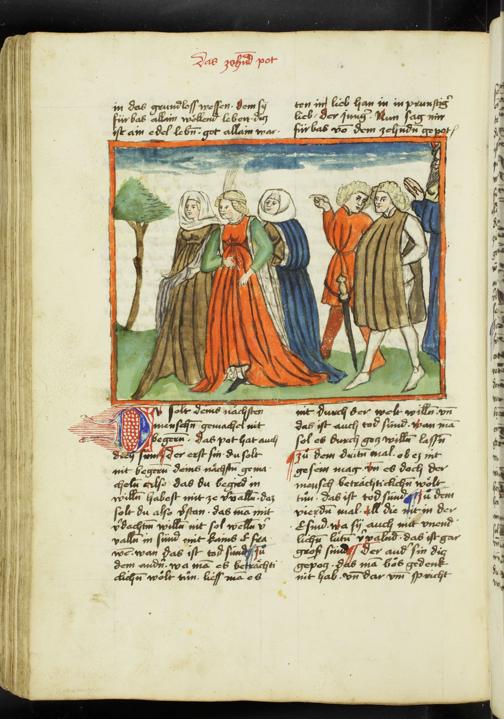 Das zehend pot
in das grundloss wesen. dem sy
fürbas allain wöllend leben. daz
ist ain edel lebn. got allain war
ten in lieb han in in prunstig
lieb. der Jung. Nun sag mir
fürbas vo dem zehndn gepot
DV solt deins nächsten
menschn gemachel nit
begern. das pot hat auch
der erst sin du solt
nit begern deins nächstn gema
cheln also. das du begird im
willn habest mit ze
solt du also das ma mit
verdachtm willn nit sol welln
valln in sünd mit kains
we. wan das ist tod sünd zu
dem andn. wa ma es betrachti
clichn wölt tun. liess ma es
nit durch der welt willn. vn
das ist auch tod sünd. wan ma
sol es durch goz willn lassn
zu dem dritn mal. ob es nit
gesein mag. vn es doch der
mensch betrachticlichn wölt
tun. das ist tod sünd zu dem
vierdn mal. all die nit in der
E sind. wa sy auch mit
lichn das ist gar
gross sünd der and sin diz
gepoz. das ma bös gedenk
nit hab. vn dar vm spricht